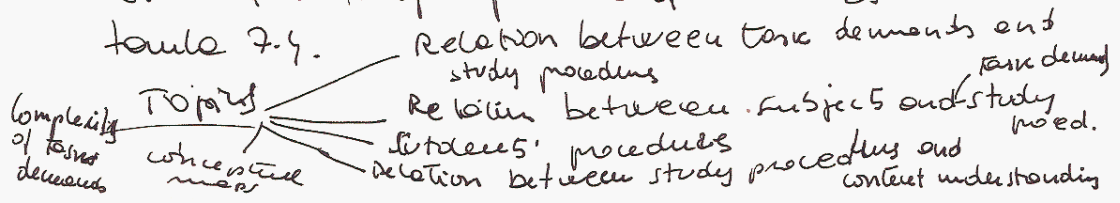 taula 7.4.
Relation between task demands and
study procedures
Topics
Relation between subjects and study
task demands
proced.
Students' procedures
Relation between study procedures and
content understanding
Complexity
of task
demands
conceptual
maps